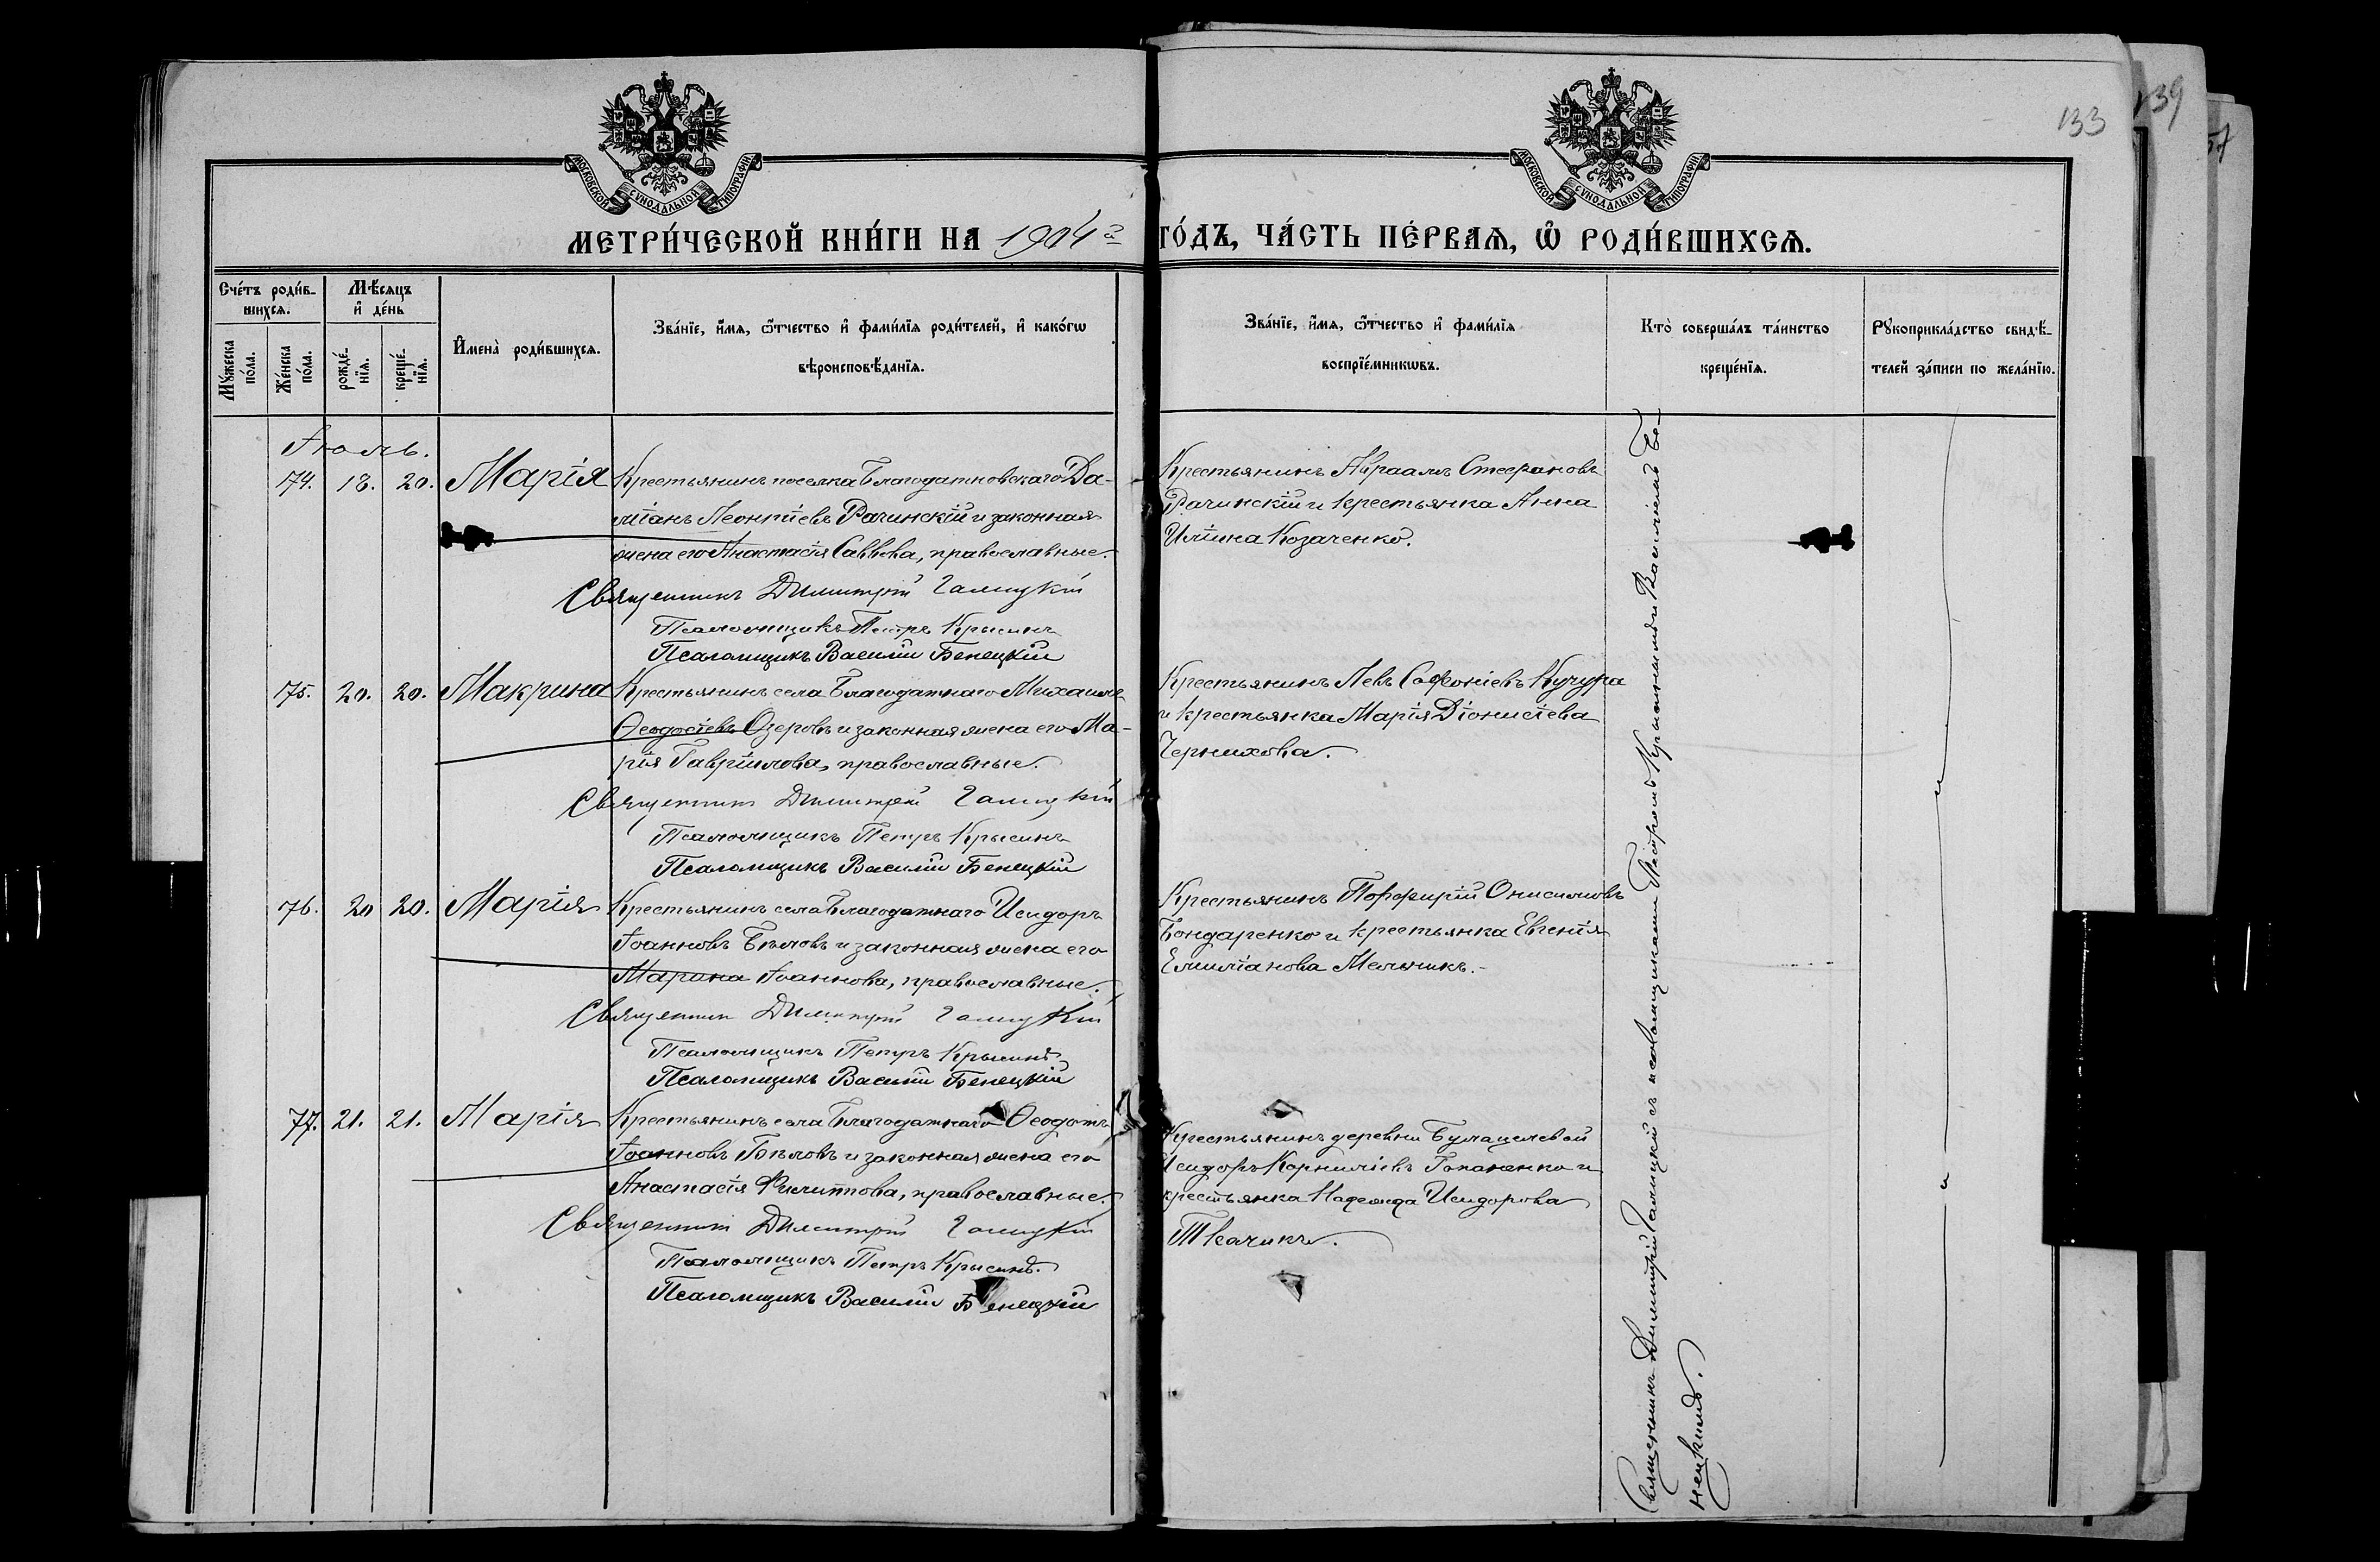 133
139
МОСКОВСКОЙ СѴНОДАЛЬНОЙ ТИПОГРАФІИ
МОСКОВСКОЙ СѴНОДАЛЬНОЙ ТИПОГРАФІИ
МЕТРИ́ЧЕСКОЙ КНИ́ГИ НА 1904й ГО́ДЪ, ЧА́СТЬ ПЕ́РВАѦ, Ѿ РОДИ́ВШИХСѦ.
Сче́тъ роди́в-
шихсѧ.
Мꙋ́жеска по́ла.
Же́нска по́ла.
Мѣ́сѧцъ
и҆ де́нь
рожде́-
нїѧ.
креще́-
нїѧ.
И҆мена̀ роди́вшихсѧ.
Зва́нїе, и҆́мѧ, ѻ҆́тчество и҆ фами́лїѧ роди́телей, и҆ како́гѡ
вѣроисповѣ́данїѧ.
Зва́нїе, и҆́мѧ, ѻ҆́тчество и҆ фами́лїѧ
воспрїе́мникѡвъ.
Кто̀ соверша́лъ та́инство
креще́нїѧ.
Рꙋкоприкла́дство свидѣ́-
телей за́писи по жела́нїю.
Іюль.
174. 18. 20. Марія
Крестьянинъ поселка Благодатновскаго Да-
міанъ Леонтіевъ Рачинскій и законная
жена его Анастасія Саввова, православные.
Священникъ Димитрій Галицкій
Псаломщикъ Петръ Крысинъ
Псаломщикъ Василій Бенецкій
Крестьянинъ Авраамъ Стефановъ
Рачинскій и крестьянка Анна
Иліина Козаченко.
175. 20. 20. Макрина
Крестьянинъ села Благодатнаго Михаилъ
Ѳеодосіевъ Озеровъ и законная жена его Ма-
рія Гавріилова, православные.
Священникъ Димитрій Галицкій
Псаломщикъ Петръ Крысинъ
Псаломщикъ Василій Бенецкій
Крестьянинъ Левъ Софоніевъ Кучура
и крестьянка Марія Діонисіева
Чернихова.
76. 20 20. Марія
Крестьянинъ села Благодатнаго Исидоръ
Іоанновъ Бѣловъ и законная жена его
Марина Іоаннова, православные.
Священникъ Димитрій Галицкій
Псаломщикъ Петръ Крысинъ
Псаломщикъ Василій Бенецкій
Крестьянинъ Порфирій Онисимовъ
Бондаренко и крестьянка Евгенія
Емиліанова Мельникъ.
77. 21. 21. Марія
Крестьянинъ села Благодатнаго Ѳеодотъ
Іоанновъ Бѣловъ и законная жена его
Анастасія Филиппова, православные.
Священникъ Димитрій Галицкій
Псаломщикъ Петръ Крысинъ.
Псаломщикъ Василій Бенецкій
Крестьянинъ деревни Булацелевой
Исидоръ Корниліевъ Гопаненко и
крестьянка Надежда Исидорова
Ткачикъ.
Священникъ Димитрій Галицкій съ псаломщиками Петромъ Крысинымъ и Василіемъ Бе-
нецкимъ.